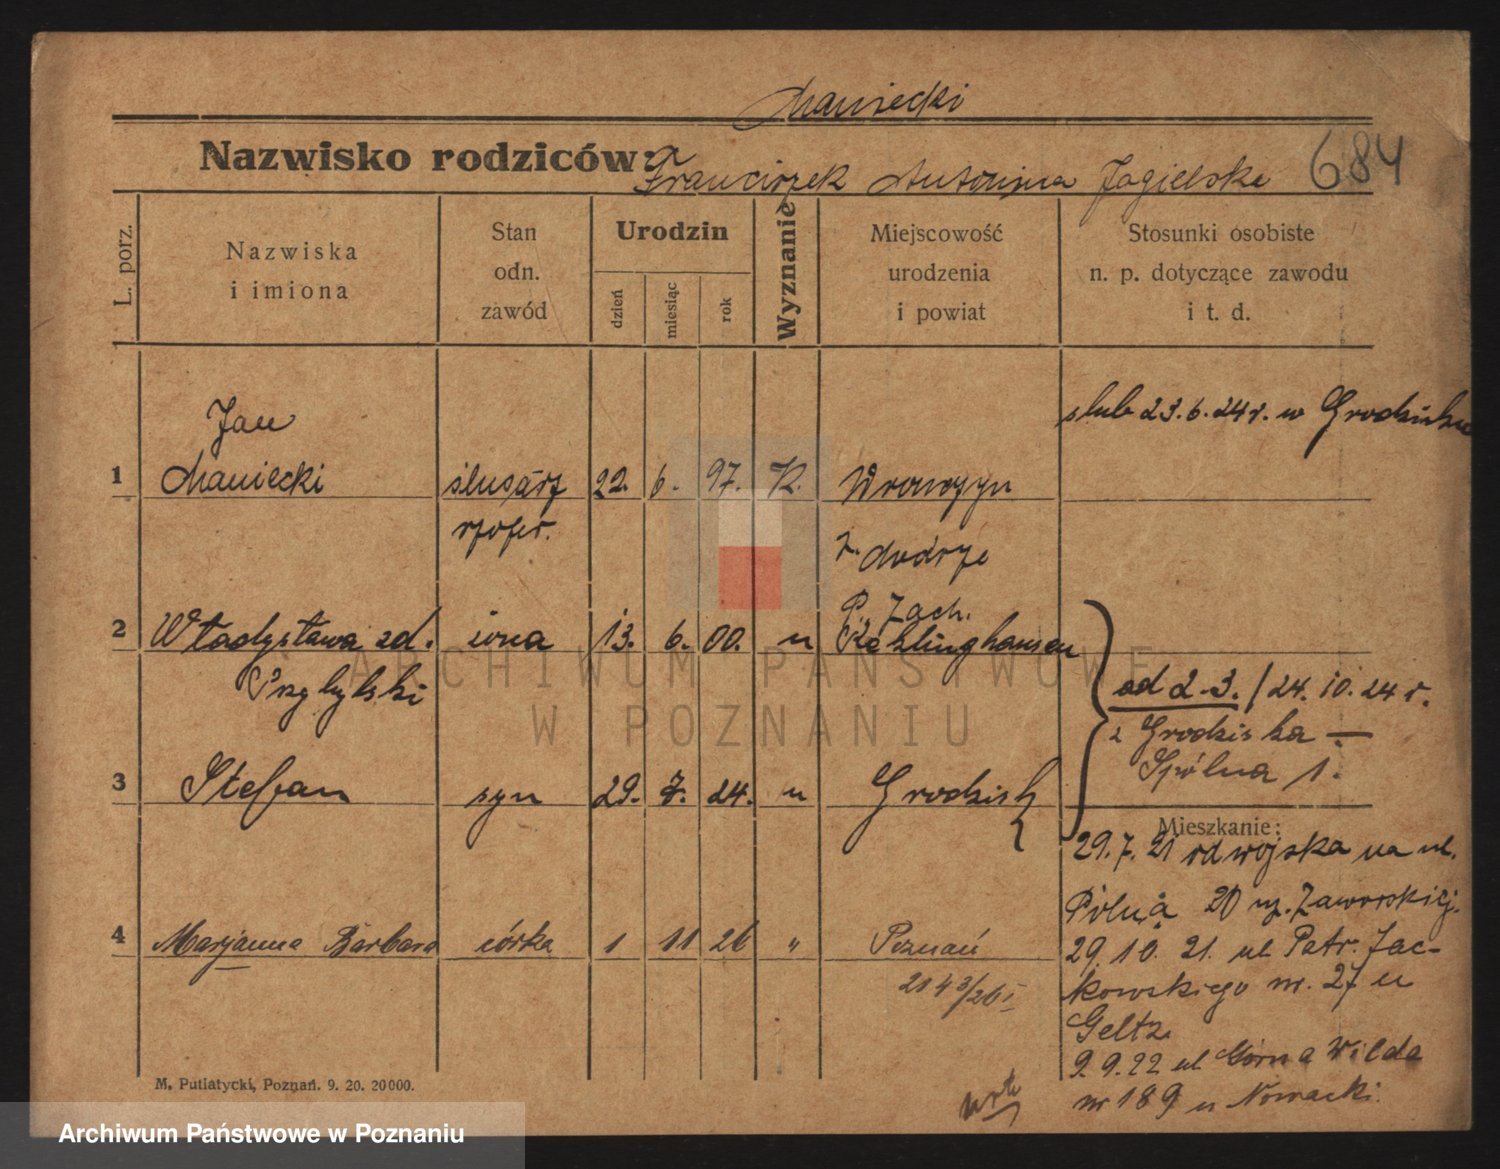 Maniecki
Nazwisko rodziców:
Franciszek Antonina Jagielska 684
L. porz.
Nazwiska
i imiona
Stan
odn.
zawód
Urodzin
dzień
miesiąc
rok
Wyznanie
Miejscowość
urodzenia
i powiat
Stosunki osobiste
n. p. dotyczące zawodu
i t. d.
ślub 23.6.24 r. w Grodzisku
Jan
1 Maniecki ślusarz 22. 6. 97. K. Wronczyn
szofer.
P. Zach.
2 Władysława zd. żona 13. 6. 00. " Reklinghausen
Przybylski
od 2-3. / 24.10.24 r.
z Grodziska —
Spólna 1.
3 Stefan syn 29. 7. 24. " Grodzisk
Mieszkanie:
29.7.21 od wojska na ul.
Polną 20 up. Zaworskiej.
4 Marjanna Barbara córka 1 11 26 " Poznań
29.10.21. ul Patr. Jac-
kowskiego nr. 27 u
2143/26 I
Geltz
9.9.22 ul Górna Wilda
nr 189 u Nowacki.
M. Putiatycki, Poznań. 9. 20. 20000.
ARCHIWUM PAŃSTWOWE
W POZNANIU
Archiwum Państwowe w Poznaniu